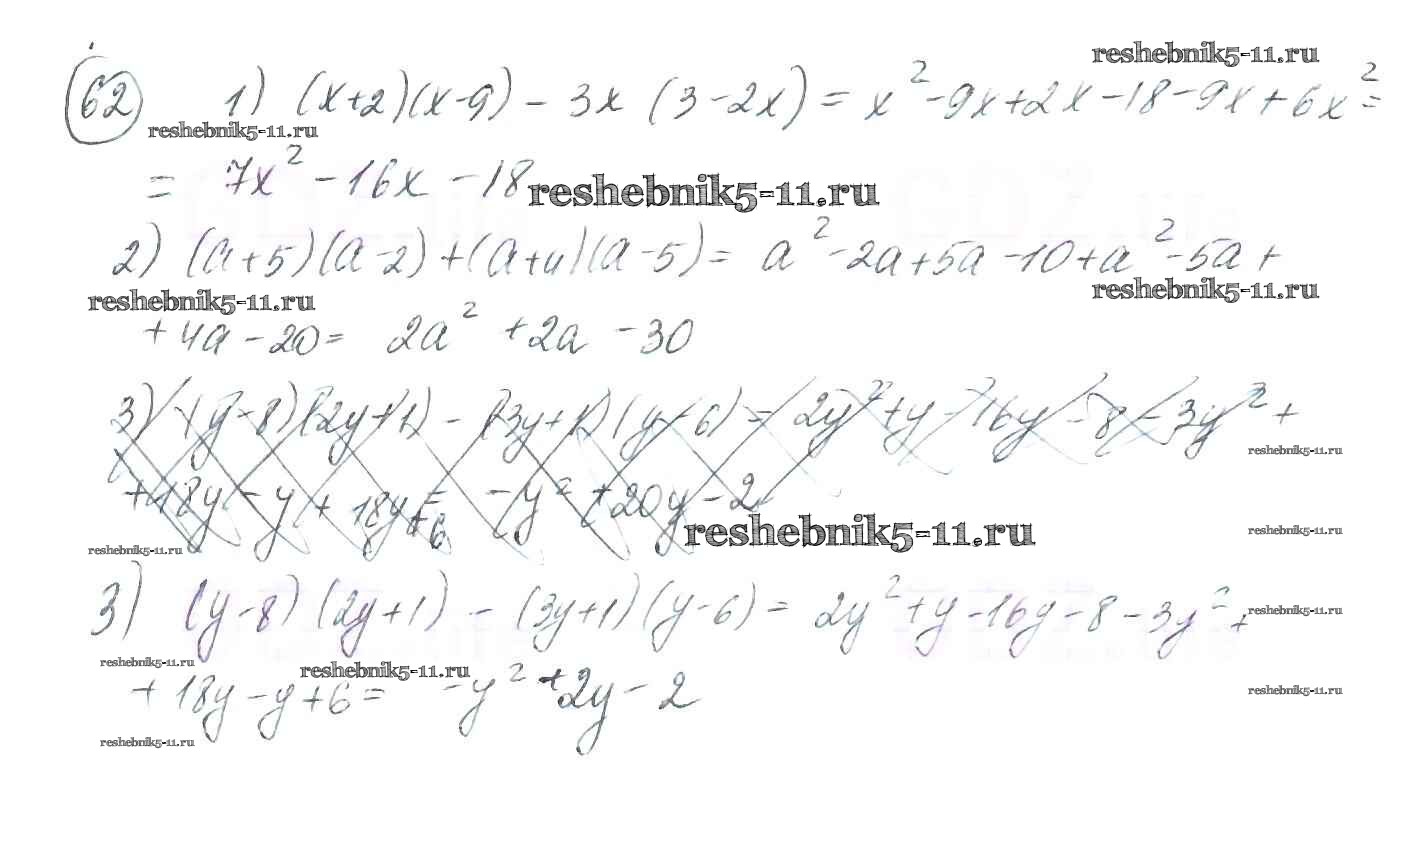 reshebnik5-11.ru
62 1) (x+2)(x-9) - 3x (3-2x) = x² - 9x + 2x - 18 - 9x + 6x² =
reshebnik5-11.ru
= 7x² - 16x - 18
reshebnik5-11.ru
2) (a+5)(a-2) + (a+4)(a-5) = a² - 2a + 5a - 10 + a² - 5a +
reshebnik5-11.ru reshebnik5-11.ru
+ 4a - 20 = 2a² + 2a - 30
3) (y-8)(2y+1) - (3y+1)(y-6) = 2y² + y - 16y - 8 - 3y² +
reshebnik5-11.ru
+ 18y - y + 18y + 6 = - y² + 20y - 2
reshebnik5-11.ru reshebnik5-11.ru
reshebnik5-11.ru
3) (y-8) (2y+1) - (3y+1)(y-6) = 2y² + y - 16y - 8 - 3y² +
reshebnik5-11.ru
reshebnik5-11.ru reshebnik5-11.ru
+ 18y - y + 6 = - y² + 2y - 2
reshebnik5-11.ru
reshebnik5-11.ru